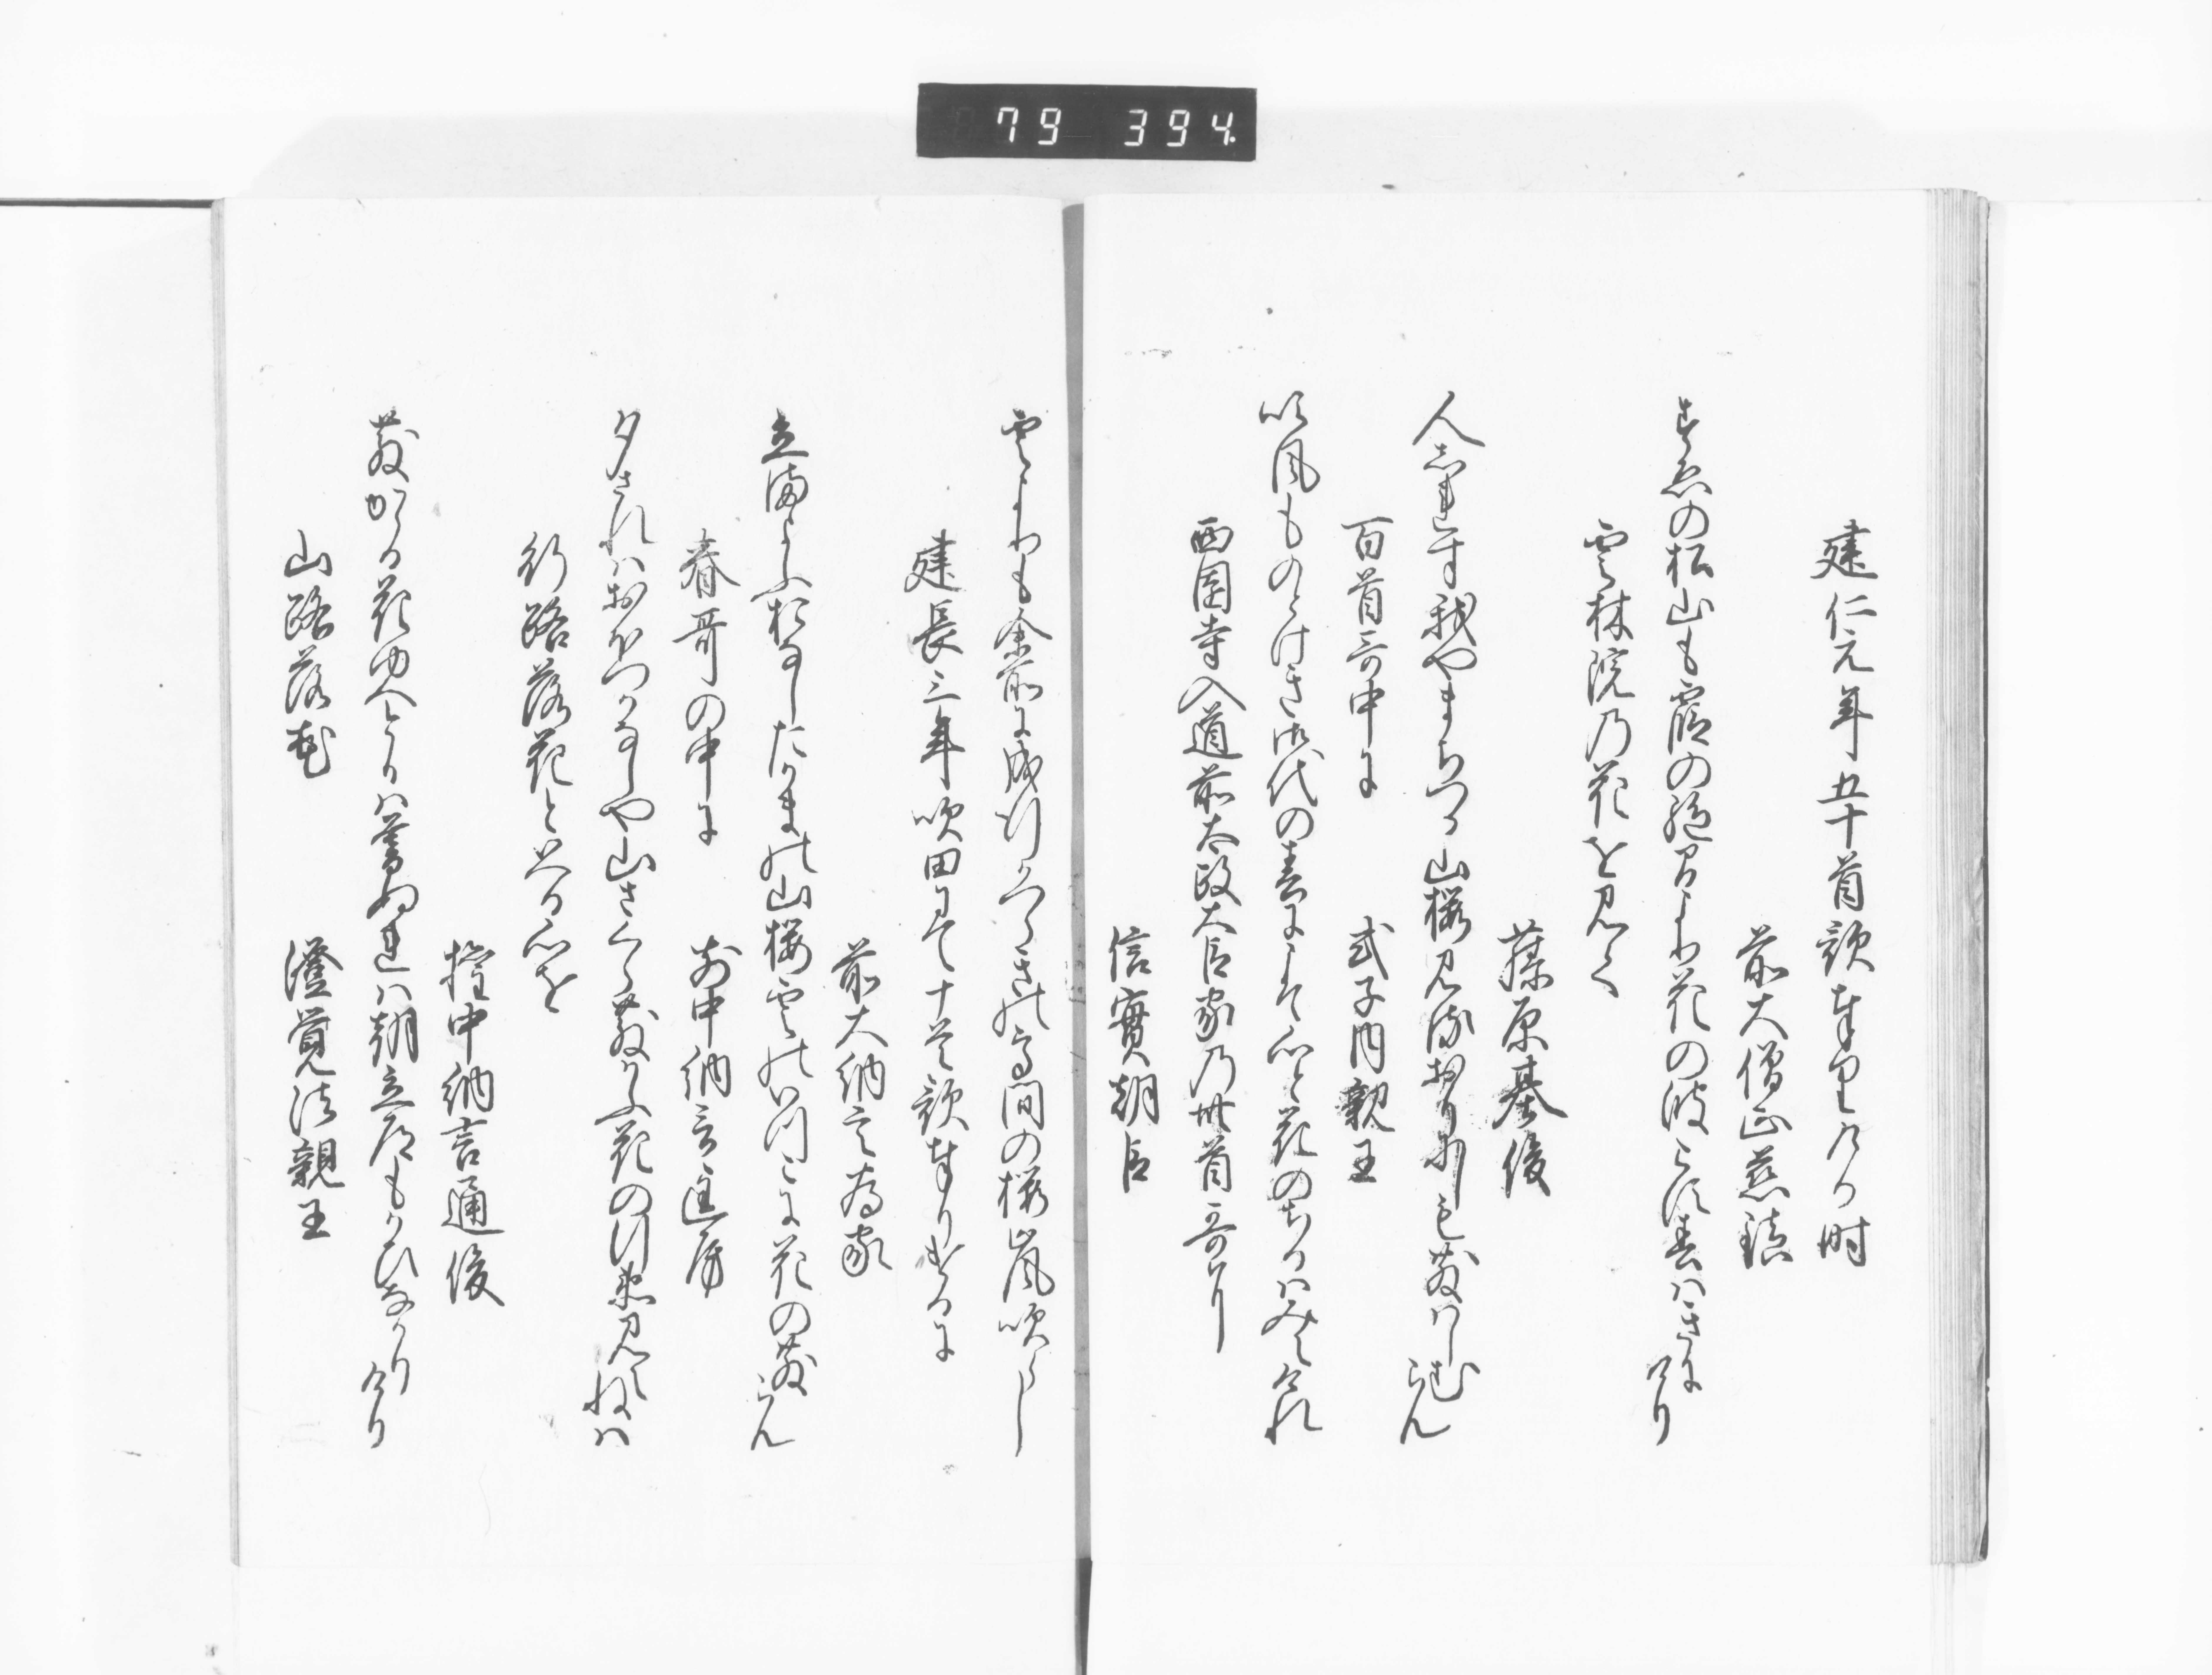 79 394
建仁元年五十首歌奉りける時
前大僧正慈鎮
すゑの松山も霞の絶まより花の波こす春はきにけり
雲林院乃花を見て
藤原基俊
人しれす我やまちつる山桜見るおりにしも散はしむらん
百首哥中に
式子内親王
吹風ものとけき御代の春にこそ心と花のちるはみえけれ
西園寺入道前太政大臣家乃卅首哥に
信實朝臣
雲よりも余所に成行かつらきの高間の桜嵐吹らし
建長三年吹田にて十首歌奉りけるに
前大納言為家
立まよふおなしたかまの山桜雲のいつこに花の散らん
春哥の中に
前中納言匡房
夕されはおほつかなしや山さくら散かふ花の行ゑ見えねは
行路落花といふ心を
権中納言通俊
散かゝる花ゆへけふは暮ぬれは朝立道もかひなかりけり
山路落花
澄覚法親王